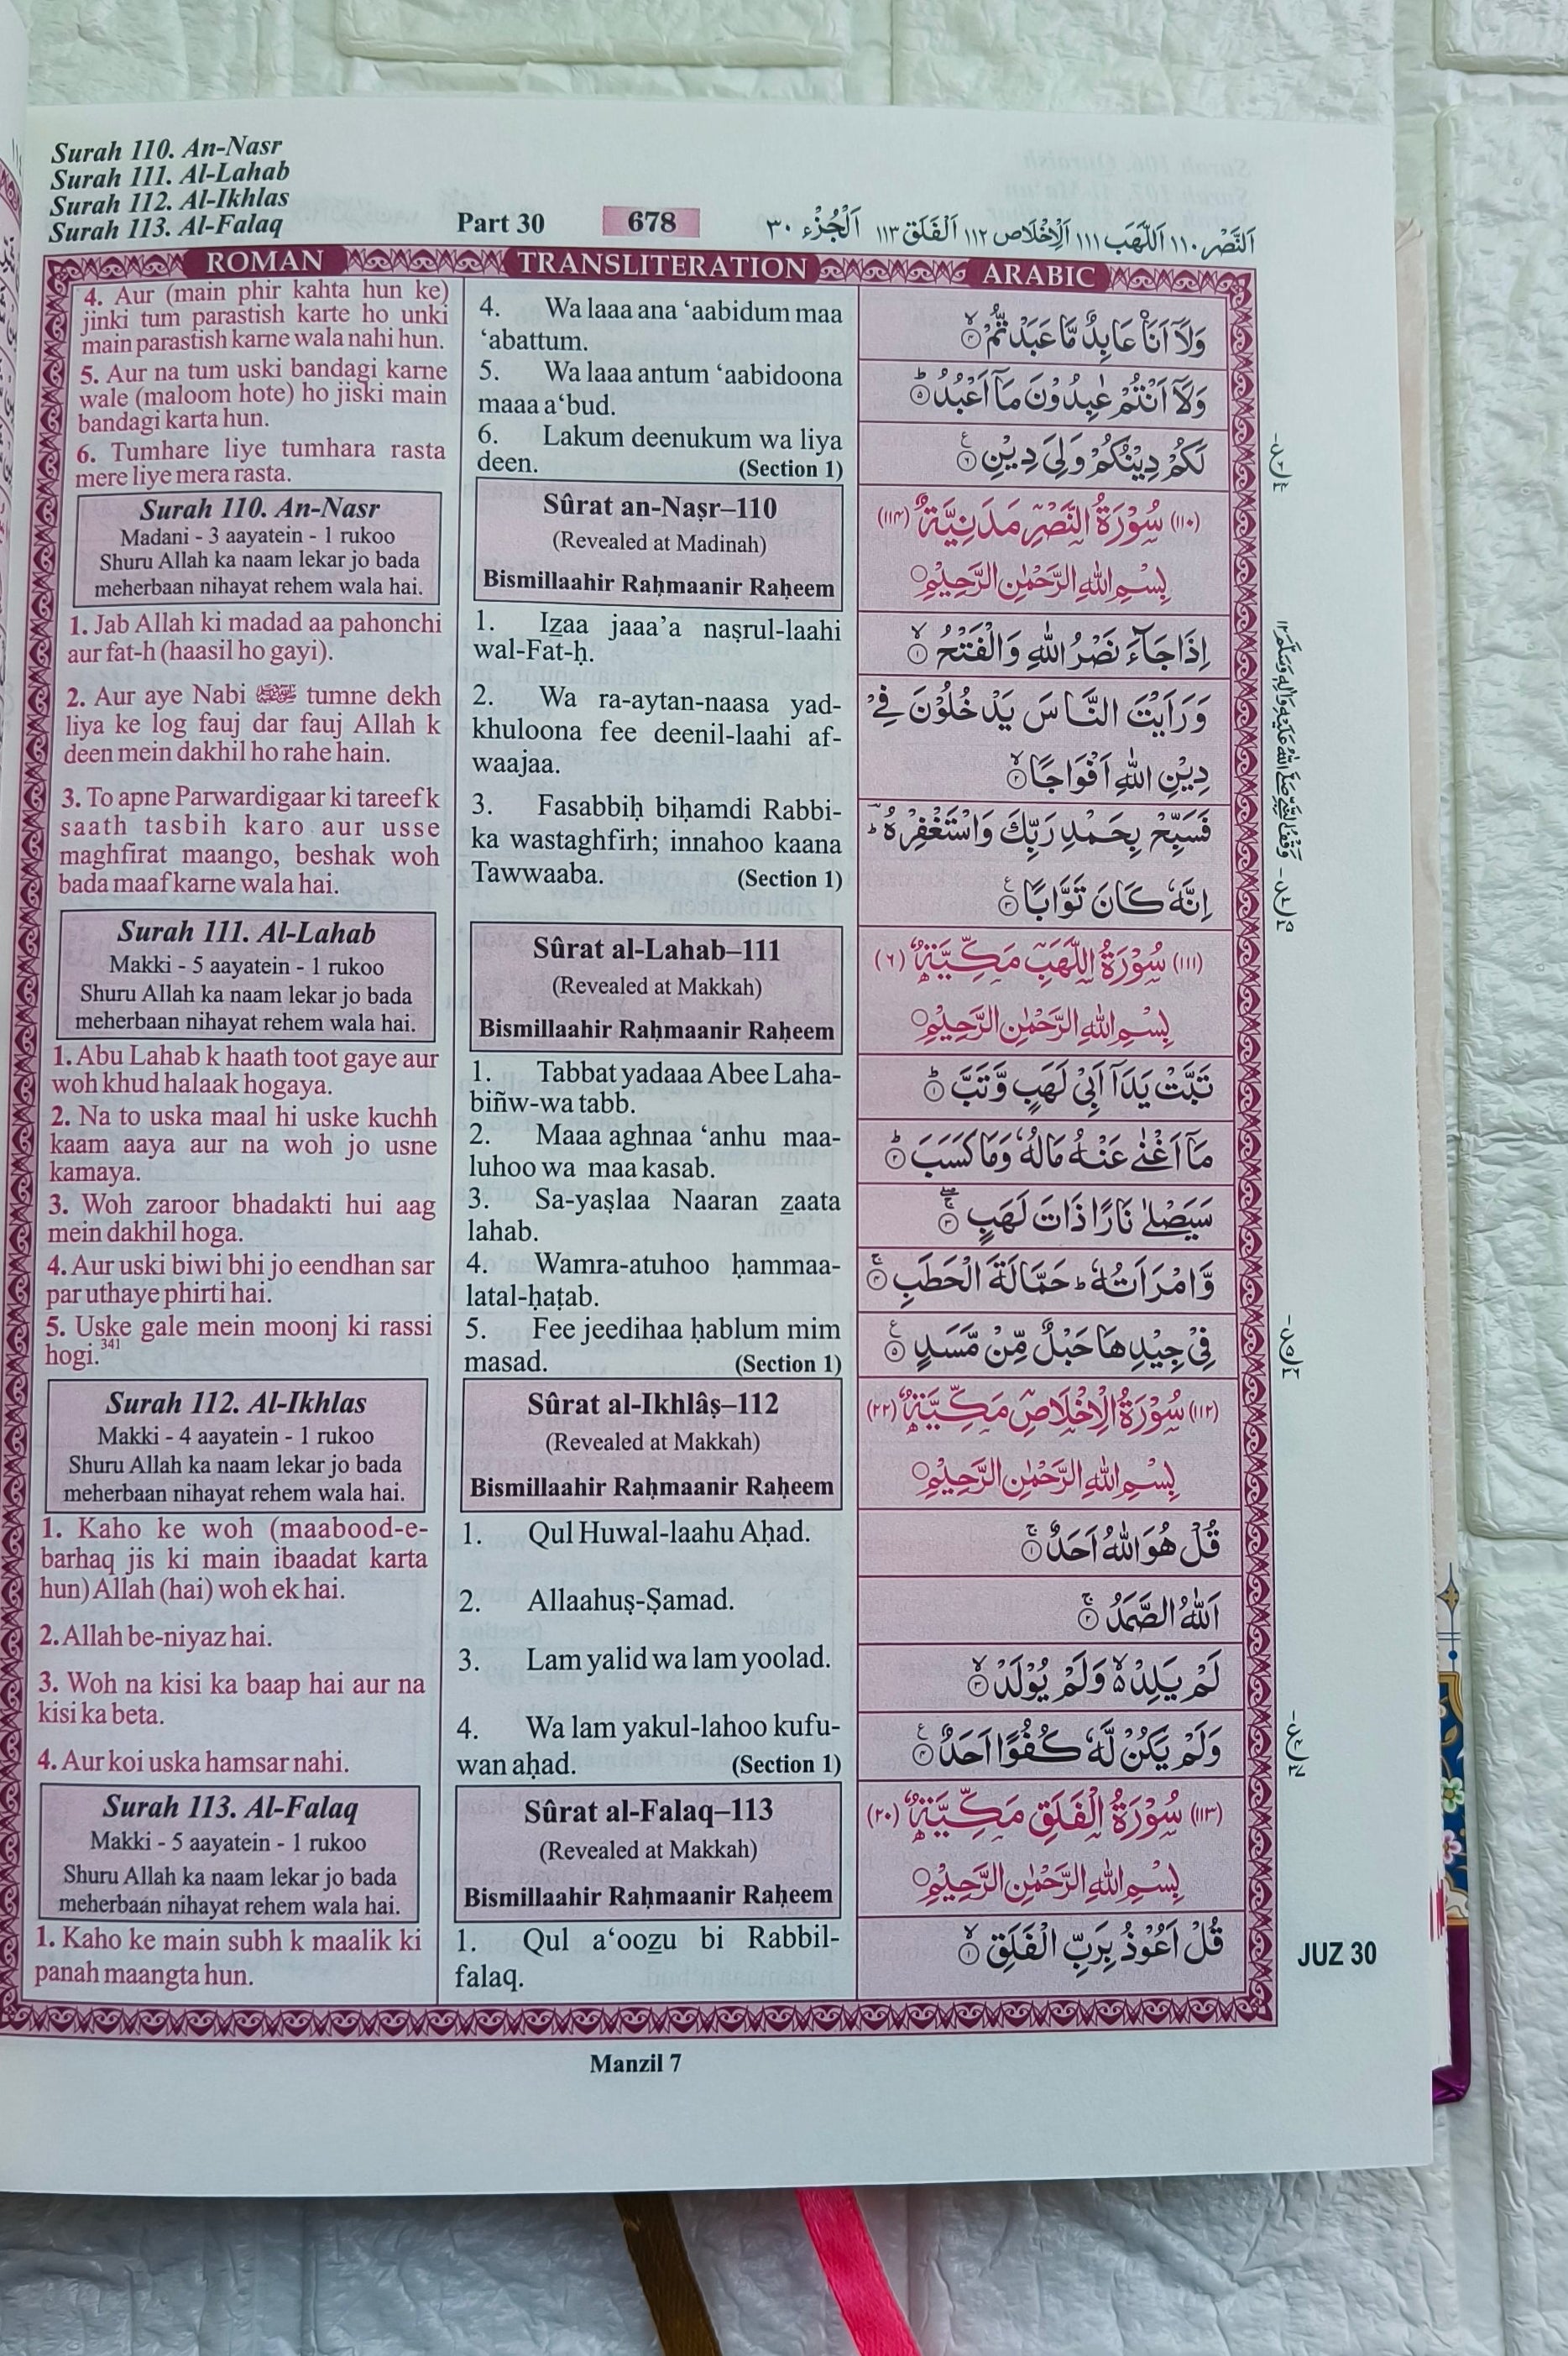 Surah 110. An-Nasr
Surah 111. Al-Lahab
Surah 112. Al-Ikhlas
Surah 113. Al-Falaq
Part 30
678
اَلنَّصْر ١١٠ اَللَّهَب ١١١ اَلْاِخْلَاص ١١٢ اَلْفَلَق ١١٣ اَلْجُزْء ٣٠
ROMAN
4. Aur (main phir kahta hun ke)
jinki tum parastish karte ho unki
main parastish karne wala nahi hun.
5. Aur na tum uski bandagi karne
wale (maloom hote) ho jiski main
bandagi karta hun.
6. Tumhare liye tumhara rasta
mere liye mera rasta.
Surah 110. An-Nasr
Madani - 3 aayatein - 1 rukoo
Shuru Allah ka naam lekar jo bada
meherbaan nihayat rehem wala hai.
1. Jab Allah ki madad aa pahonchi
aur fat-h (haasil ho gayi).
2. Aur aye Nabi ﷺ tumne dekh
liya ke log fauj dar fauj Allah k
deen mein dakhil ho rahe hain.
3. To apne Parwardigaar ki tareef k
saath tasbih karo aur usse
maghfirat maango, beshak woh
bada maaf karne wala hai.
Surah 111. Al-Lahab
Makki - 5 aayatein - 1 rukoo
Shuru Allah ka naam lekar jo bada
meherbaan nihayat rehem wala hai.
1. Abu Lahab k haath toot gaye aur
woh khud halaak hogaya.
2. Na to uska maal hi uske kuchh
kaam aaya aur na woh jo usne
kamaya.
3. Woh zaroor bhadakti hui aag
mein dakhil hoga.
4. Aur uski biwi bhi jo eendhan sar
par uthaye phirti hai.
5. Uske gale mein moonj ki rassi
hogi.341
Surah 112. Al-Ikhlas
Makki - 4 aayatein - 1 rukoo
Shuru Allah ka naam lekar jo bada
meherbaan nihayat rehem wala hai.
1. Kaho ke woh (maabood-e-
barhaq jis ki main ibaadat karta
hun) Allah (hai) woh ek hai.
2. Allah be-niyaz hai.
3. Woh na kisi ka baap hai aur na
kisi ka beta.
4. Aur koi uska hamsar nahi.
Surah 113. Al-Falaq
Makki - 5 aayatein - 1 rukoo
Shuru Allah ka naam lekar jo bada
meherbaan nihayat rehem wala hai.
1. Kaho ke main subh k maalik ki
panah maangta hun.
TRANSLITERATION
4. Wa laaa ana ‘aabidum maa
‘abattum.
5. Wa laaa antum ‘aabidoona
maaa a‘bud.
6. Lakum deenukum wa liya
deen. (Section 1)
Sûrat an-Naṣr–110
(Revealed at Madinah)
Bismillaahir Raḥmaanir Raḥeem
1. Izaa jaaa’a naṣrul-laahi
wal-Fat-ḥ.
2. Wa ra-aytan-naasa yad-
khuloona fee deenil-laahi af-
waajaa.
3. Fasabbiḥ biḥamdi Rabbi-
ka wastaghfirh; innahoo kaana
Tawwaaba. (Section 1)
Sûrat al-Lahab–111
(Revealed at Makkah)
Bismillaahir Raḥmaanir Raḥeem
1. Tabbat yadaaa Abee Laha-
biñw-wa tabb.
2. Maaa aghnaa ‘anhu maa-
luhoo wa maa kasab.
3. Sa-yaṣlaa Naaran zaata
lahab.
4. Wamra-atuhoo ḥammaa-
latal-ḥaṭab.
5. Fee jeedihaa ḥablum mim
masad. (Section 1)
Sûrat al-Ikhlâṣ–112
(Revealed at Makkah)
Bismillaahir Raḥmaanir Raḥeem
1. Qul Huwal-laahu Aḥad.
2. Allaahuṣ-Ṣamad.
3. Lam yalid wa lam yoolad.
4. Wa lam yakul-lahoo kufu-
wan aḥad. (Section 1)
Sûrat al-Falaq–113
(Revealed at Makkah)
Bismillaahir Raḥmaanir Raḥeem
1. Qul a‘oozu bi Rabbil-
falaq.
ARABIC
وَلَآ اَنَا۠ عَابِدٌ مَّا عَبَدْتُّمْ ۙ ۴
وَلَآ اَنْتُمْ عٰبِدُوْنَ مَآ اَعْبُدُ ؕ ۵
لَكُمْ دِيْنُكُمْ وَلِيَ دِيْنِ ۶
(١١٠) سُوْرَةُ النَّصْرِ مَدَنِيَّةٌ (١١۴)
بِسْمِ اللّٰهِ الرَّحْمٰنِ الرَّحِيْمِ
اِذَا جَآءَ نَصْرُ اللّٰهِ وَالْفَتْحُ ۙ ١
وَرَاَيْتَ النَّاسَ يَدْخُلُوْنَ فِيْ
دِيْنِ اللّٰهِ اَفْوَاجًا ۙ ٢
فَسَبِّحْ بِحَمْدِ رَبِّكَ وَاسْتَغْفِرْهُ ؔؕ
اِنَّهٗ كَانَ تَوَّابًا ٣
(١١١) سُوْرَةُ اللَّهَبِ مَكِّيَّةٌ (٦)
بِسْمِ اللّٰهِ الرَّحْمٰنِ الرَّحِيْمِ
تَبَّتْ يَدَآ اَبِيْ لَهَبٍ وَّتَبَّ ؕ ١
مَآ اَغْنٰى عَنْهُ مَالُهٗ وَمَا كَسَبَ ؕ ٢
سَيَصْلٰى نَارًا ذَاتَ لَهَبٍ ۚۖ ٣
وَّامْرَاَتُهٗ ؕ حَمَّالَةَ الْحَطَبِ ۚ ۴
فِيْ جِيْدِهَا حَبْلٌ مِّنْ مَّسَدٍ ۵
(١١٢) سُوْرَةُ الْاِخْلَاصِ مَكِّيَّةٌ (٢٢)
بِسْمِ اللّٰهِ الرَّحْمٰنِ الرَّحِيْمِ
قُلْ هُوَ اللّٰهُ اَحَدٌ ۚ ١
اَللّٰهُ الصَّمَدُ ۚ ٢
لَمْ يَلِدْ ۙ۬ وَلَمْ يُوْلَدْ ۙ ٣
وَلَمْ يَكُنْ لَّهٗ كُفُوًا اَحَدٌ ۴
(١١٣) سُوْرَةُ الْفَلَقِ مَكِّيَّةٌ (٢٠)
بِسْمِ اللّٰهِ الرَّحْمٰنِ الرَّحِيْمِ
قُلْ اَعُوْذُ بِرَبِّ الْفَلَقِ ۙ ١
JUZ 30
Manzil 7